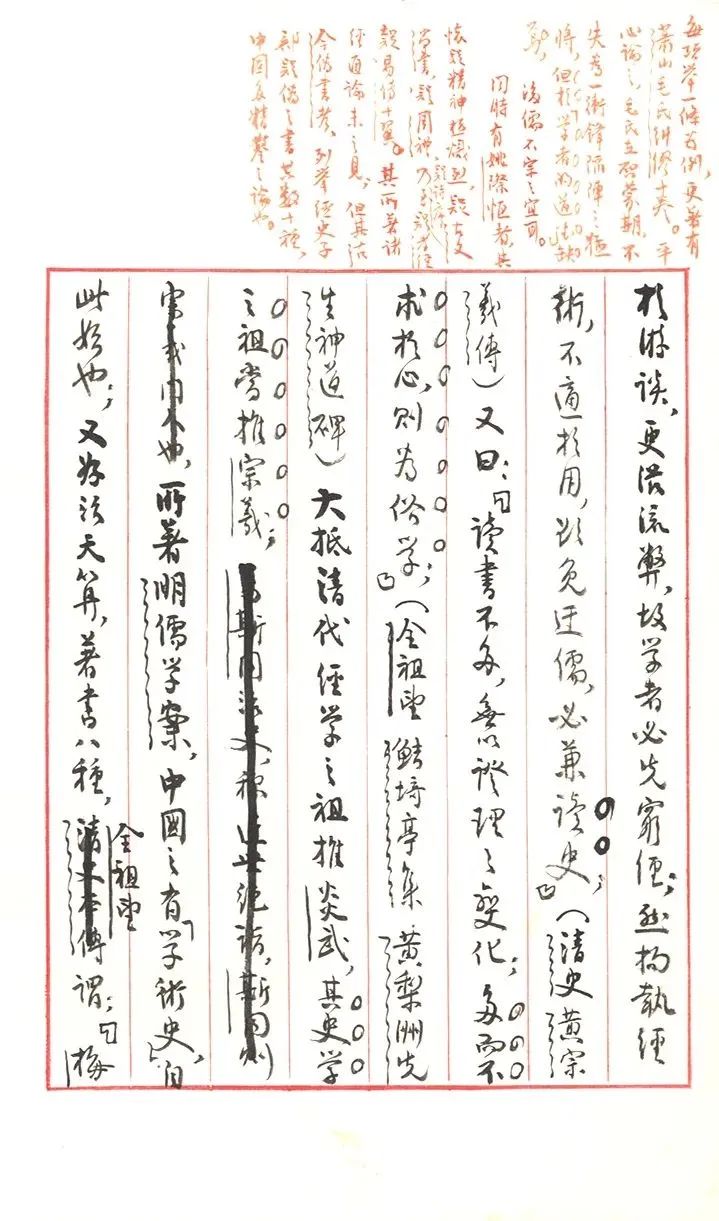 每項舉一條為例,更著有
蕭山毛氏糾繆十卷。平
心論之,毛氏在啓蒙期,不
失為一衝鋒陷陣之猛
將,但於學者的道德缺
焉,後儒不宗之宜耳。
同時有姚際恒者,其
懷疑精神極熾烈,疑古文
尚書,疑周禮,疑詩序,乃至疑孝經
疑易傳十翼。其所著諸
經通論未之見,但其古
今偽書考,列舉經史子
部疑偽之書共數十種,
中固多精鑿之論也。
於游談,更滋流弊,故學者必先窮經;然拘執經
術,不適於用,欲免迂儒,必兼讀史;」(清史黃宗
羲傳)又曰:「讀書不多,無以證理之變化;多而不
求於心,則為俗學;」(全祖望鮚埼亭集黃梨洲先
生神道碑)大抵清代經學之祖推炎武,其史學
之祖當推宗羲;
所著明儒學案,中國之有「學術史」,自
此始也;又好治天算,著書八種,全祖望謂:「梅